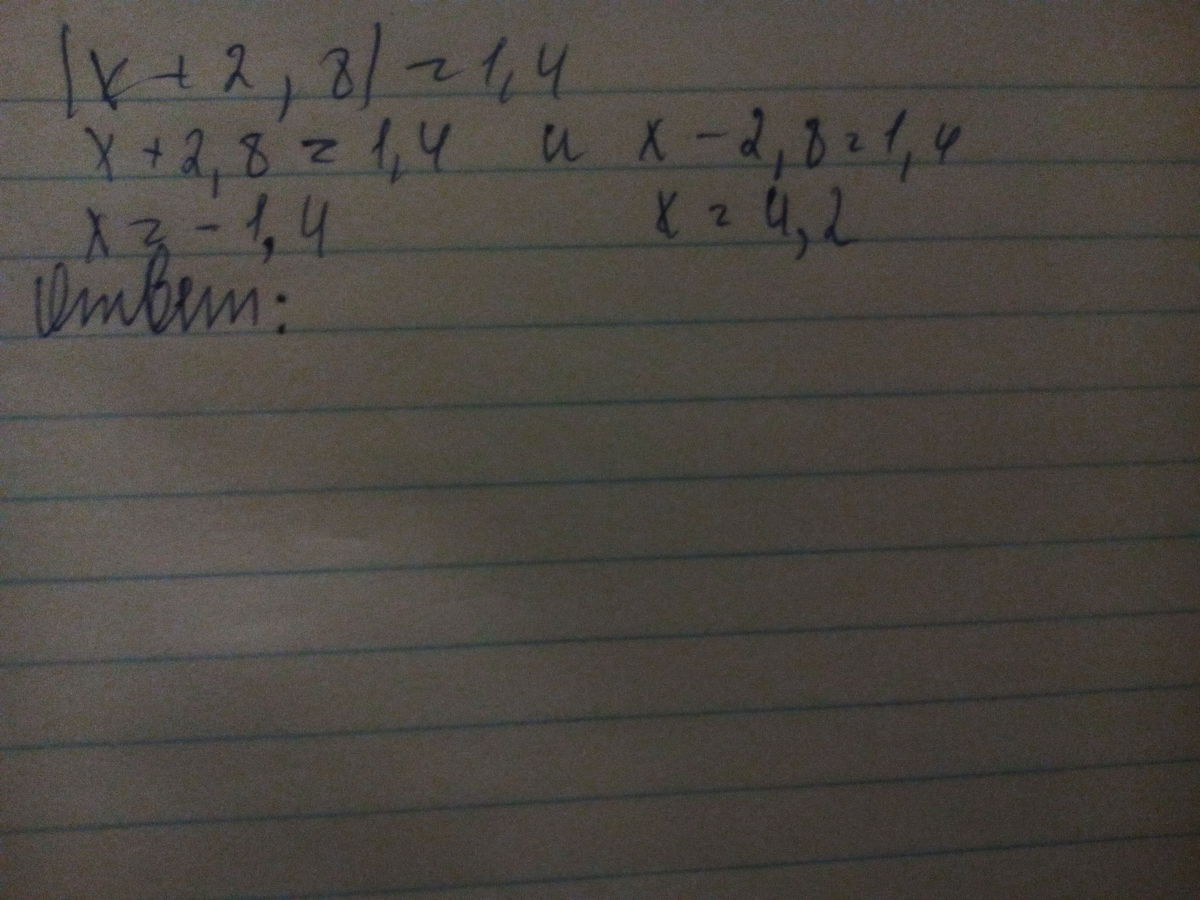 |x + 2,8| = 1,4
x + 2,8 = 1,4 и x - 2,8 = 1,4
x = - 1,4 x = 4,2
Ответ: